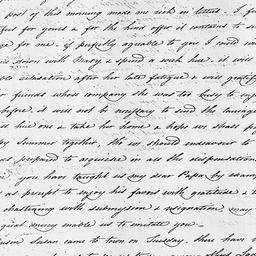 post of this morning made me rich in letters, I f
ful for yours & for the kind offer it contains to
ge for me, if perfectly agreeable to you I could
down with Mary & spend a week here, it will
relaxation after her late fatigue & will gratify
friends whose company she was too busy to enjoy
before, it will not be necessary to send the carriage
hire one & take her home & hope we shall
happy Summer together. We should endeavour to
as prepared to acquiesce in all the dispensations
you have taught us my dear Papa by exam
as precept to enjoy his favors with gratitude &
chastening with submission & resignation, may
great mercy enable us to imitate you
Susan came to town on Tuesday, there have